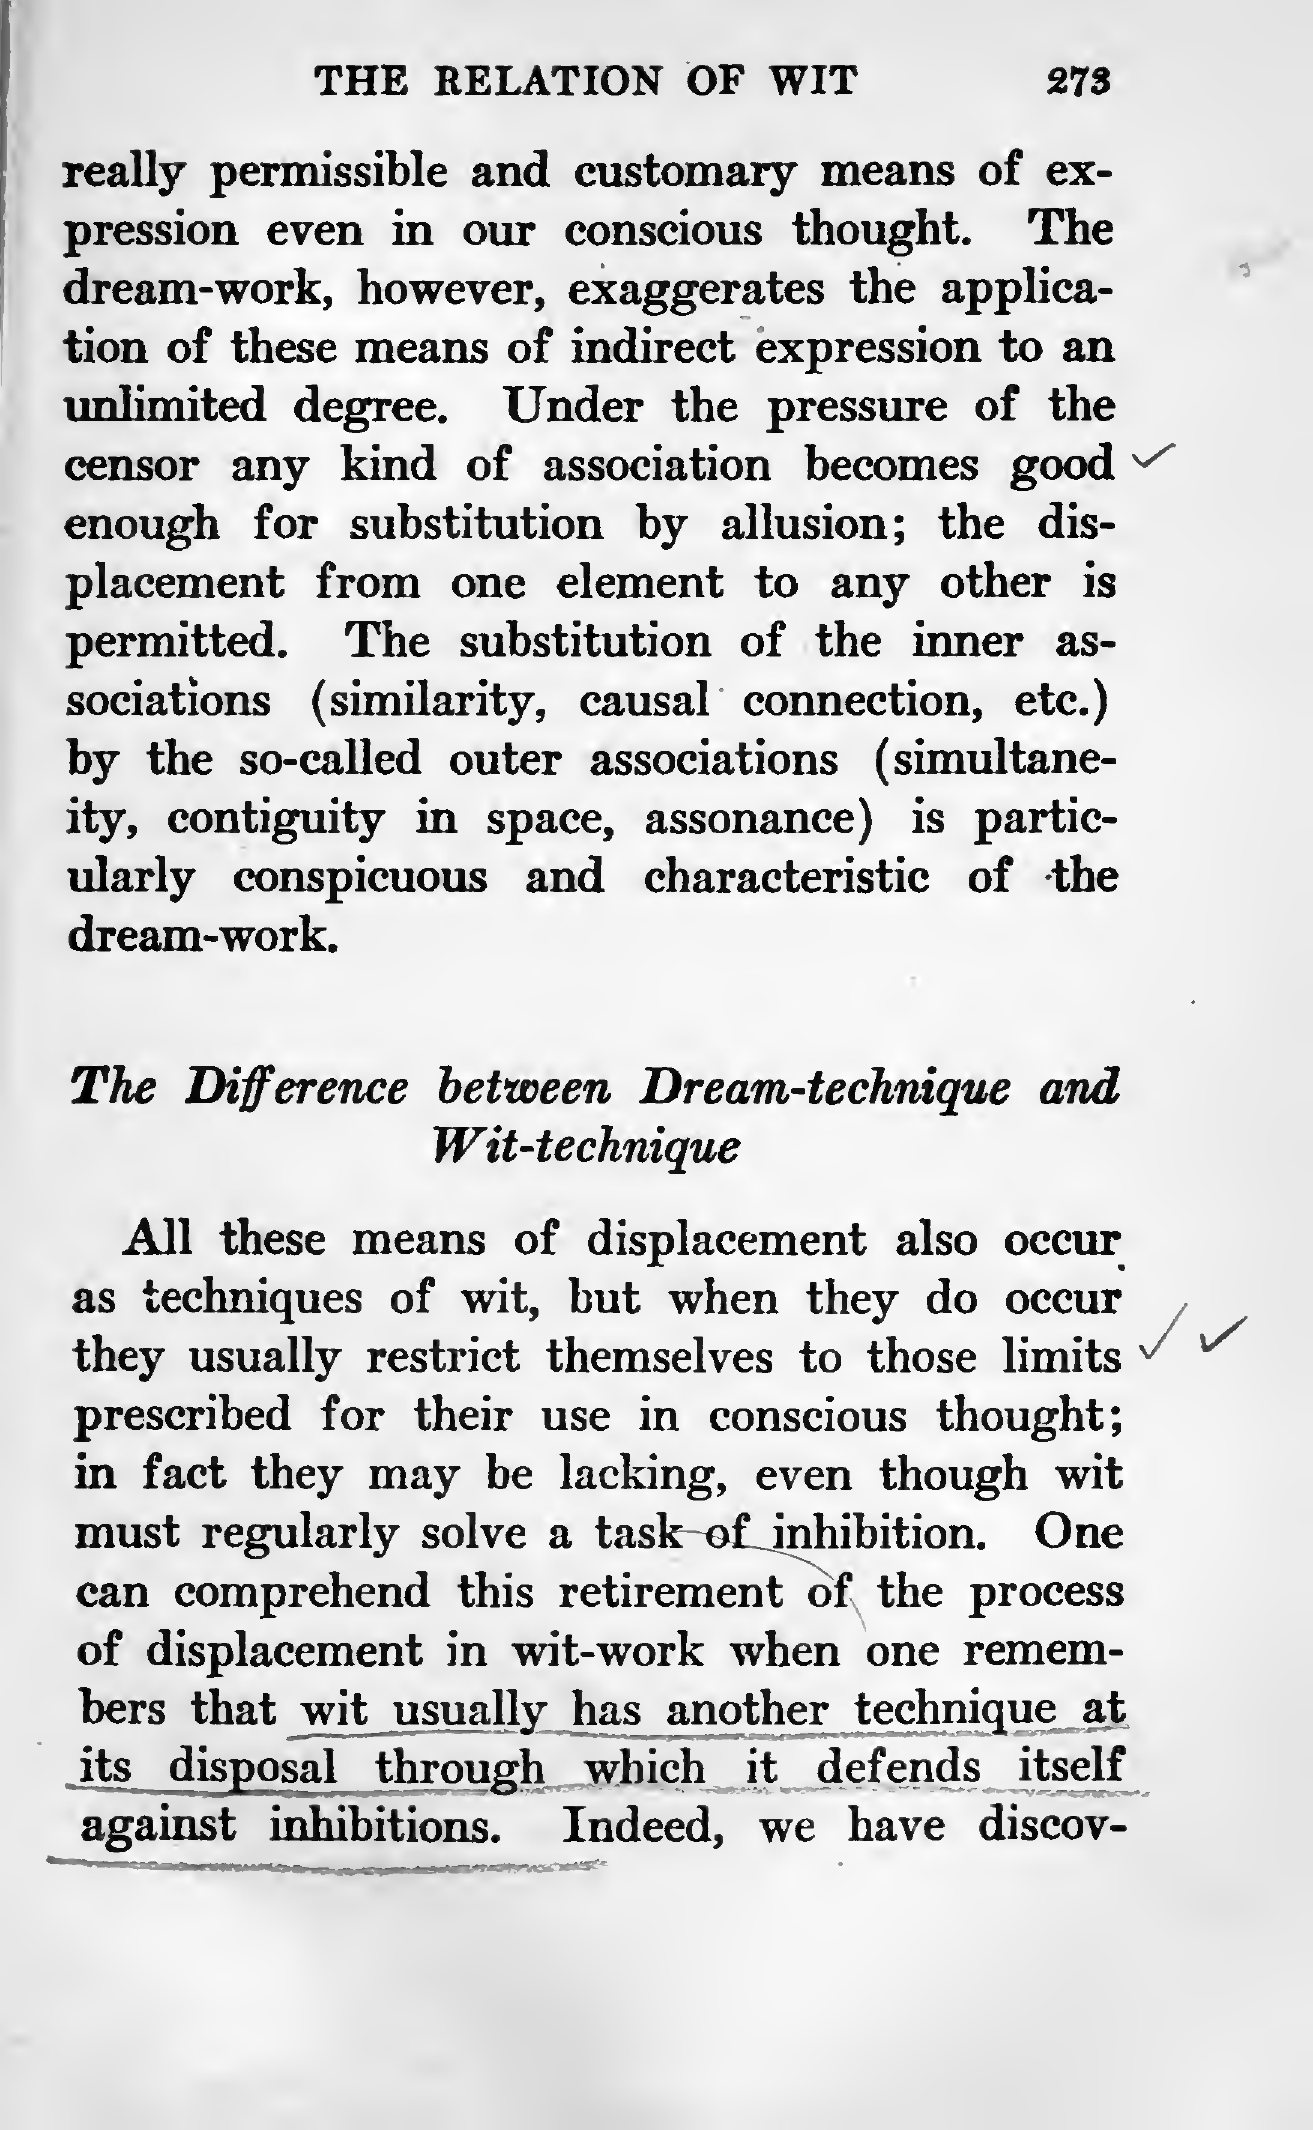 THE RELATION OF WIT 273
really permissible and customary means of ex-
pression even in our conscious thought. The
dream-work, however, exaggerates the applica-
tion of these means of indirect expression to an
unlimited degree. Under the pressure of the
censor any kind of association becomes good
enough for substitution by allusion; the dis-
placement from one element to any other is
permitted. The substitution of the inner as-
sociations (similarity, causal connection, etc.)
by the so-called outer associations (simultane-
ity, contiguity in space, assonance) is partic-
ularly conspicuous and characteristic of the
dream-work.
The Difference between Dream-technique and
Wit-technique
All these means of displacement also occur
as techniques of wit, but when they do occur
they usually restrict themselves to those limits
prescribed for their use in conscious thought;
in fact they may be lacking, even though wit
must regularly solve a task of inhibition. One
can comprehend this retirement of the process
of displacement in wit-work when one remem-
bers that wit usually has another technique at
its disposal through which it defends itself
against inhibitions. Indeed, we have discov-